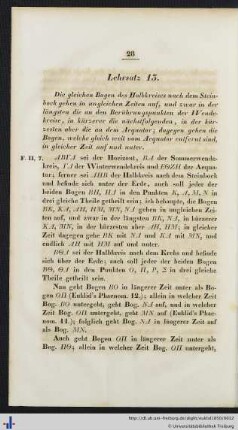 28
Lehrsatz 15.
Die gleichen Bogen des Halbkreises nach dem Stein-
bock gehen in ungleichen Zeiten auf, und zwar in der
längsten die an den Berührungspunkten der Wende-
kreise, in kürzerer die nächstfolgenden, in der kür-
zesten aber die an dem Aequator; dagegen gehen die
Bogen, welche gleich weit vom Aequator entfernt sind,
in gleicher Zeit auf und unter.
F. 11, 7. ΑΒΓΔ sei der Horizont, der Sommerwende-
kreis, der Winterwendekreis und der Aequa-
tor; ferner sei der Halbkreis nach dem Steinbock
und befinde sich unter der Erde, auch soll jeder der
beiden Bogen in den Punkten in drei
gleiche Theile getheilt sein; ich behaupte, die Bogen
gehen in ungleichen Zei-
ten auf, und zwar in der längsten in kürzerer
in der kürzesten aber in
gleicher Zeit dagegen gehe mit und mit und
endlich mit auf und unter.
sei der Halbkreis nach dem Krebs und befinde
sich über der Erde; auch soll jeder der beiden Bogen
in den Punkten in drei gleiche
Theile getheilt sein.
Nun geht Bogen in längerer Zeit unter als Bo-
gen (Euklid's Phaenom. 12.); allein in welcher Zeit
Bog. untergeht, geht Bog. auf, und in welcher
Zeit Bog. untergeht, geht auf (Euklid's Phae-
nom. 11.); folglich geht Bog. in längerer Zeit auf
als Bog.
Auch geht Bogen in längerer Zeit unter als
Bog. allein in welcher Zeit Bog. untergeht,